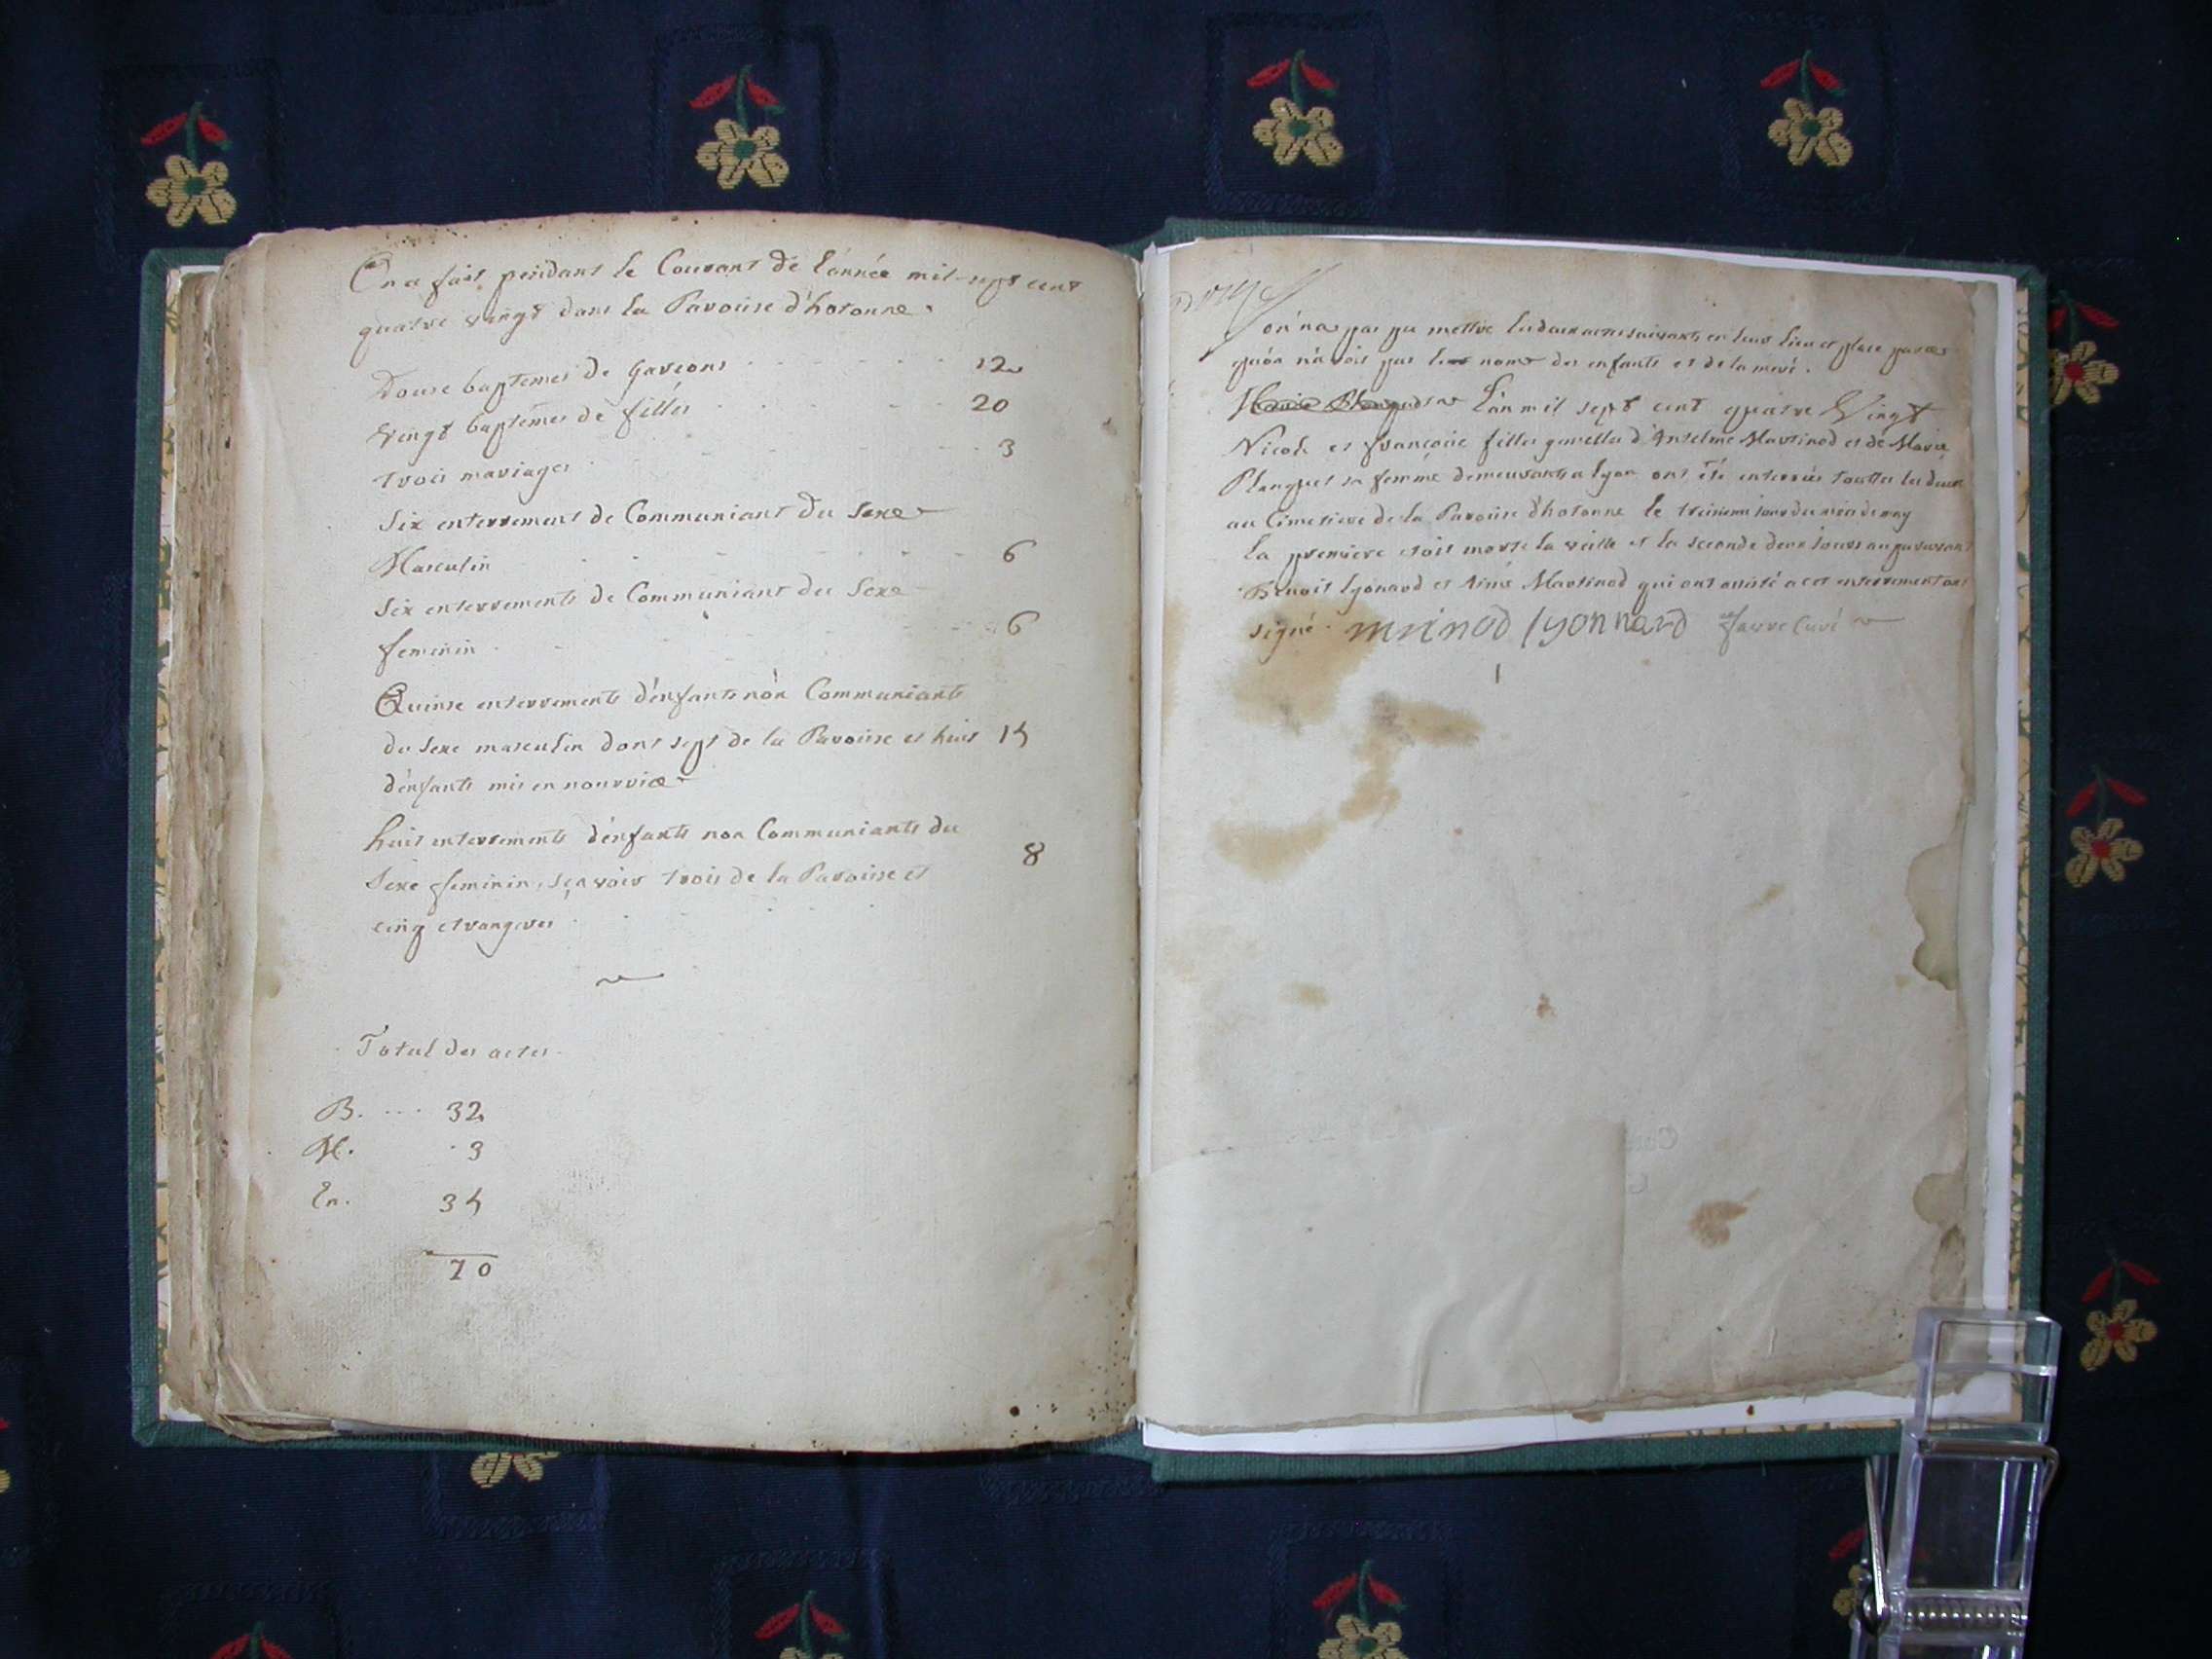 On a fait pendant le Courant de l'année mil-sept cent
quatre vingt dans la Paroisse d'hotonne.
Douse baptemes de garçons 12
vingt baptemes de filles 20
trois mariages 3
Six enterrement de Communiant du Sexe
Masculin 6
Six enterrements de Communiant du Sexe
feminin 6
Quinse enterrements d'enfants non Communiants
du sexe masculin dont sept de la Paroisse et huit 15
d'enfants mis en nourrice
huit enterrements d'enfants non Communiants du
Sexe feminin, sçavoir trois de la Paroisse et 8
cinq etrangeres
Total des actes
B. .... 32
M. . 3
En. 35
70
on n'a pas pu mettre les deux actes suivants en leur lieu et place parce
qu'on n'avoit pas les noms des enfants et de la mere.
L'an mil sept cent quatre Vingt
Nicole et françoise filles gemelles d'Anselme Martinod et de Marie
Planquet sa femme demeurants a lyon ont été enterrées touttes les deux
au Cimetiere de la Paroisse d'hotonne le troisieme jour du mois de may
la premiere etoit morte la veille et la seconde deux jours auparavant
Benoit lyonard et Aimé Martinod qui ont assisté a cet enterrement ont
signé. mrinod lyonnard favre Curé